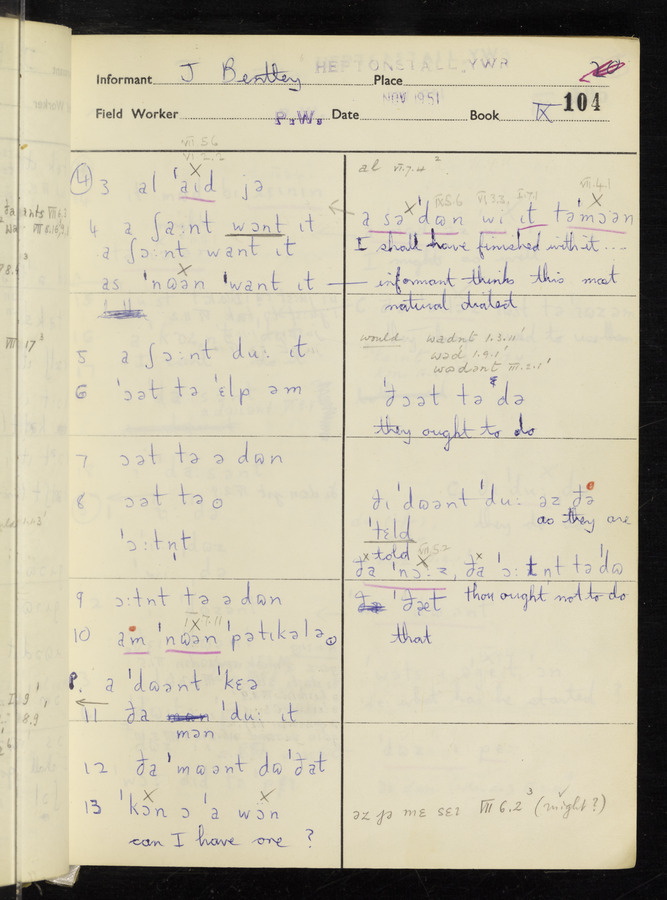 Informant J Bentley Place HEPTONSTALL YWR
Field Worker P.W. Date NOV 1951 Book IX 104
VII 5.6
VI 2.2
④ 3 al ˈaɪd jə
4 a ʃaːnt wɒnt ɪt
a ʃɔːnt want ɪt
as ˈnɷən ˈwant ɪt
5 a ʃɔːnt duː ɪt
6 ˈɔət tə ˈɛlp əm
7 ɔət tə ə dɷn
8 ɔət tə
ˈɔːtn̩t
9 ɔːtnt tə ə dɷn
IX 7.11
10 am ˈnɷən ˈpətɪkələ
8. a ˈdɷənt ˈkɛə
11 ða ˈduː ɪt
mən
12 ða ˈmɷənt dɷ ˈðat
13 ˈkɔn ɔ ˈa wɔn
can I have one ?
al VI.7.4 ²
VII.4.1
V.5.6 VI.3.3 I.7.1
a sə ˈdɷn wɪ ɪt təˈmɔən
I shall have finished with it ....
informant thinks this most
natural dialect
would wədnt 1.3.11'
wəd 1.9.1'
wədənt III.2.1'
ˈðɔət tə də
they ought to do
ðɪ ˈdɷənt ˈduː əz ðə
as they are
ˈtɛld
told VII 5.2
ða ˈnɔːz, ða ˈɔːtnt tə ˈdɷ
ˈðɛt thou ought not to do
that
əz jə mɛ sɛɪ VII 6.2 ³ (might ?)